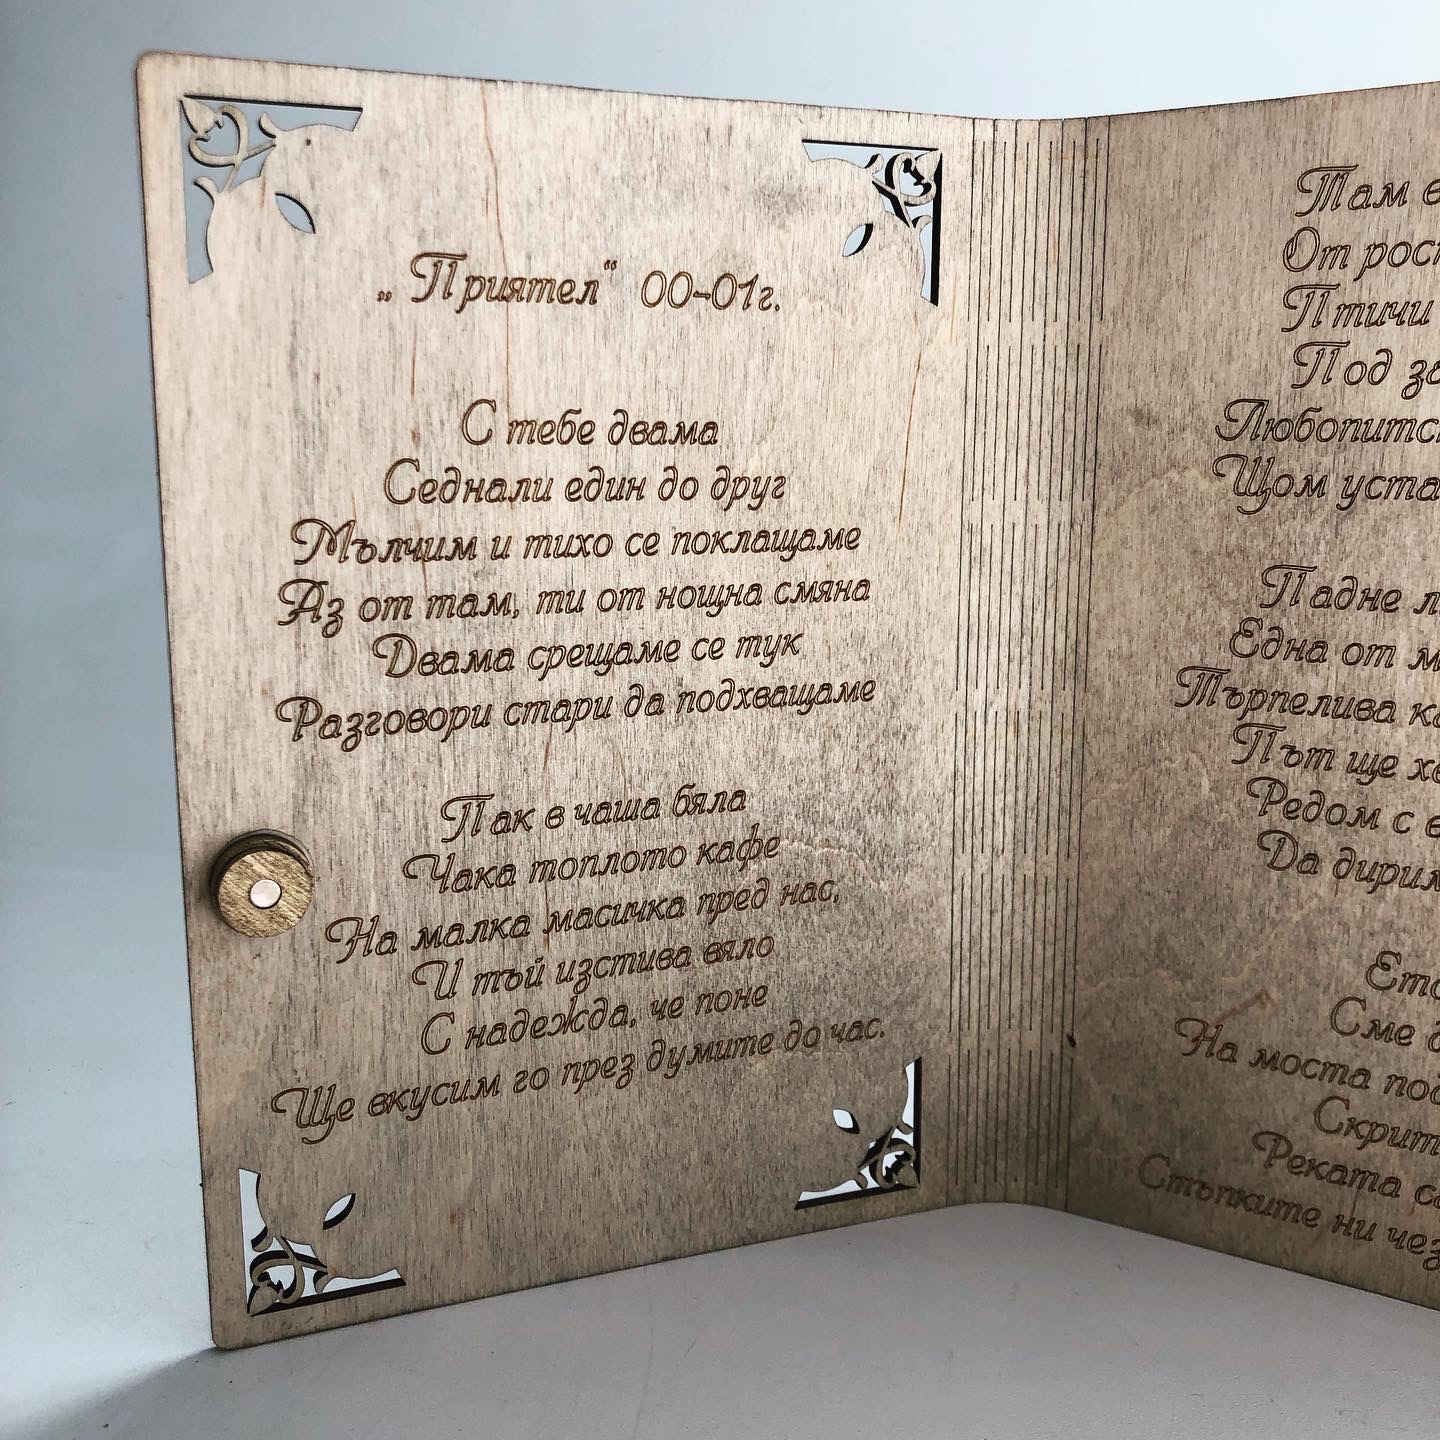 „Приятел“ 00-01г.
С тебе двама
Седнали един до друг
Мълчим и тихо се поклащаме
Аз от там, ти от нощна смяна
Двама срещаме се тук
Разговори стари да подхващаме
Пак в чаша бяла
Чака топлото кафе
На малка масичка пред нас,
И тъй изстива вяло
С надежда, че поне
Ще вкусим го през думите до час.
Там
От
Птичи
Под
Щом
Падне
Една от
Търпелива
Път ще
Редом с
Да
Сме
На моста
Реката
Стъпките ни